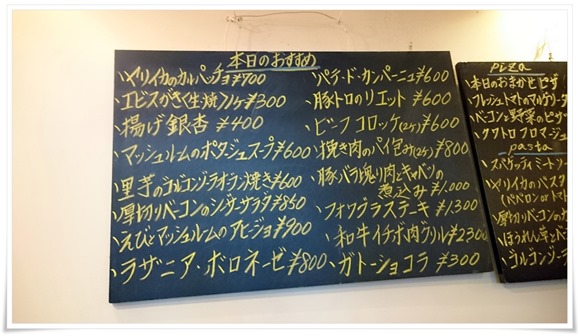 本日のおすすめ
ヤリイカのカルパッチョ¥700
揚げ銀杏 ¥400
マッシュルームのポタージュスープ¥600
里芋のゴルゴンゾーラオーブン焼き¥600
厚切りベーコンのシーザーサラダ¥850
えびとマッシュルームのアヒージョ¥900
ラザニア・ボロネーゼ¥800
パテ・ド・カンパーニュ¥600
豚トロのリエット ¥600
ビーフコロッケ(2ケ) ¥600
挽き肉のパイ包み(2ケ) ¥800
豚バラ塊り肉とキャベツの
煮込み¥1.000
フォワグラステーキ ¥1.300
和牛イチボ肉グリル¥2300
ガトーショコラ ¥300
pizza
本日のおまかせピザ
フレッシュトマトのマルゲリータ
ベーコンと野菜のピザ
クワトロフロマージュ
pasta
スパゲッティミートソー
ヤリイカのパスタ
厚切りベーコンの
ほうれん草とベー
ゴルゴンゾーラ